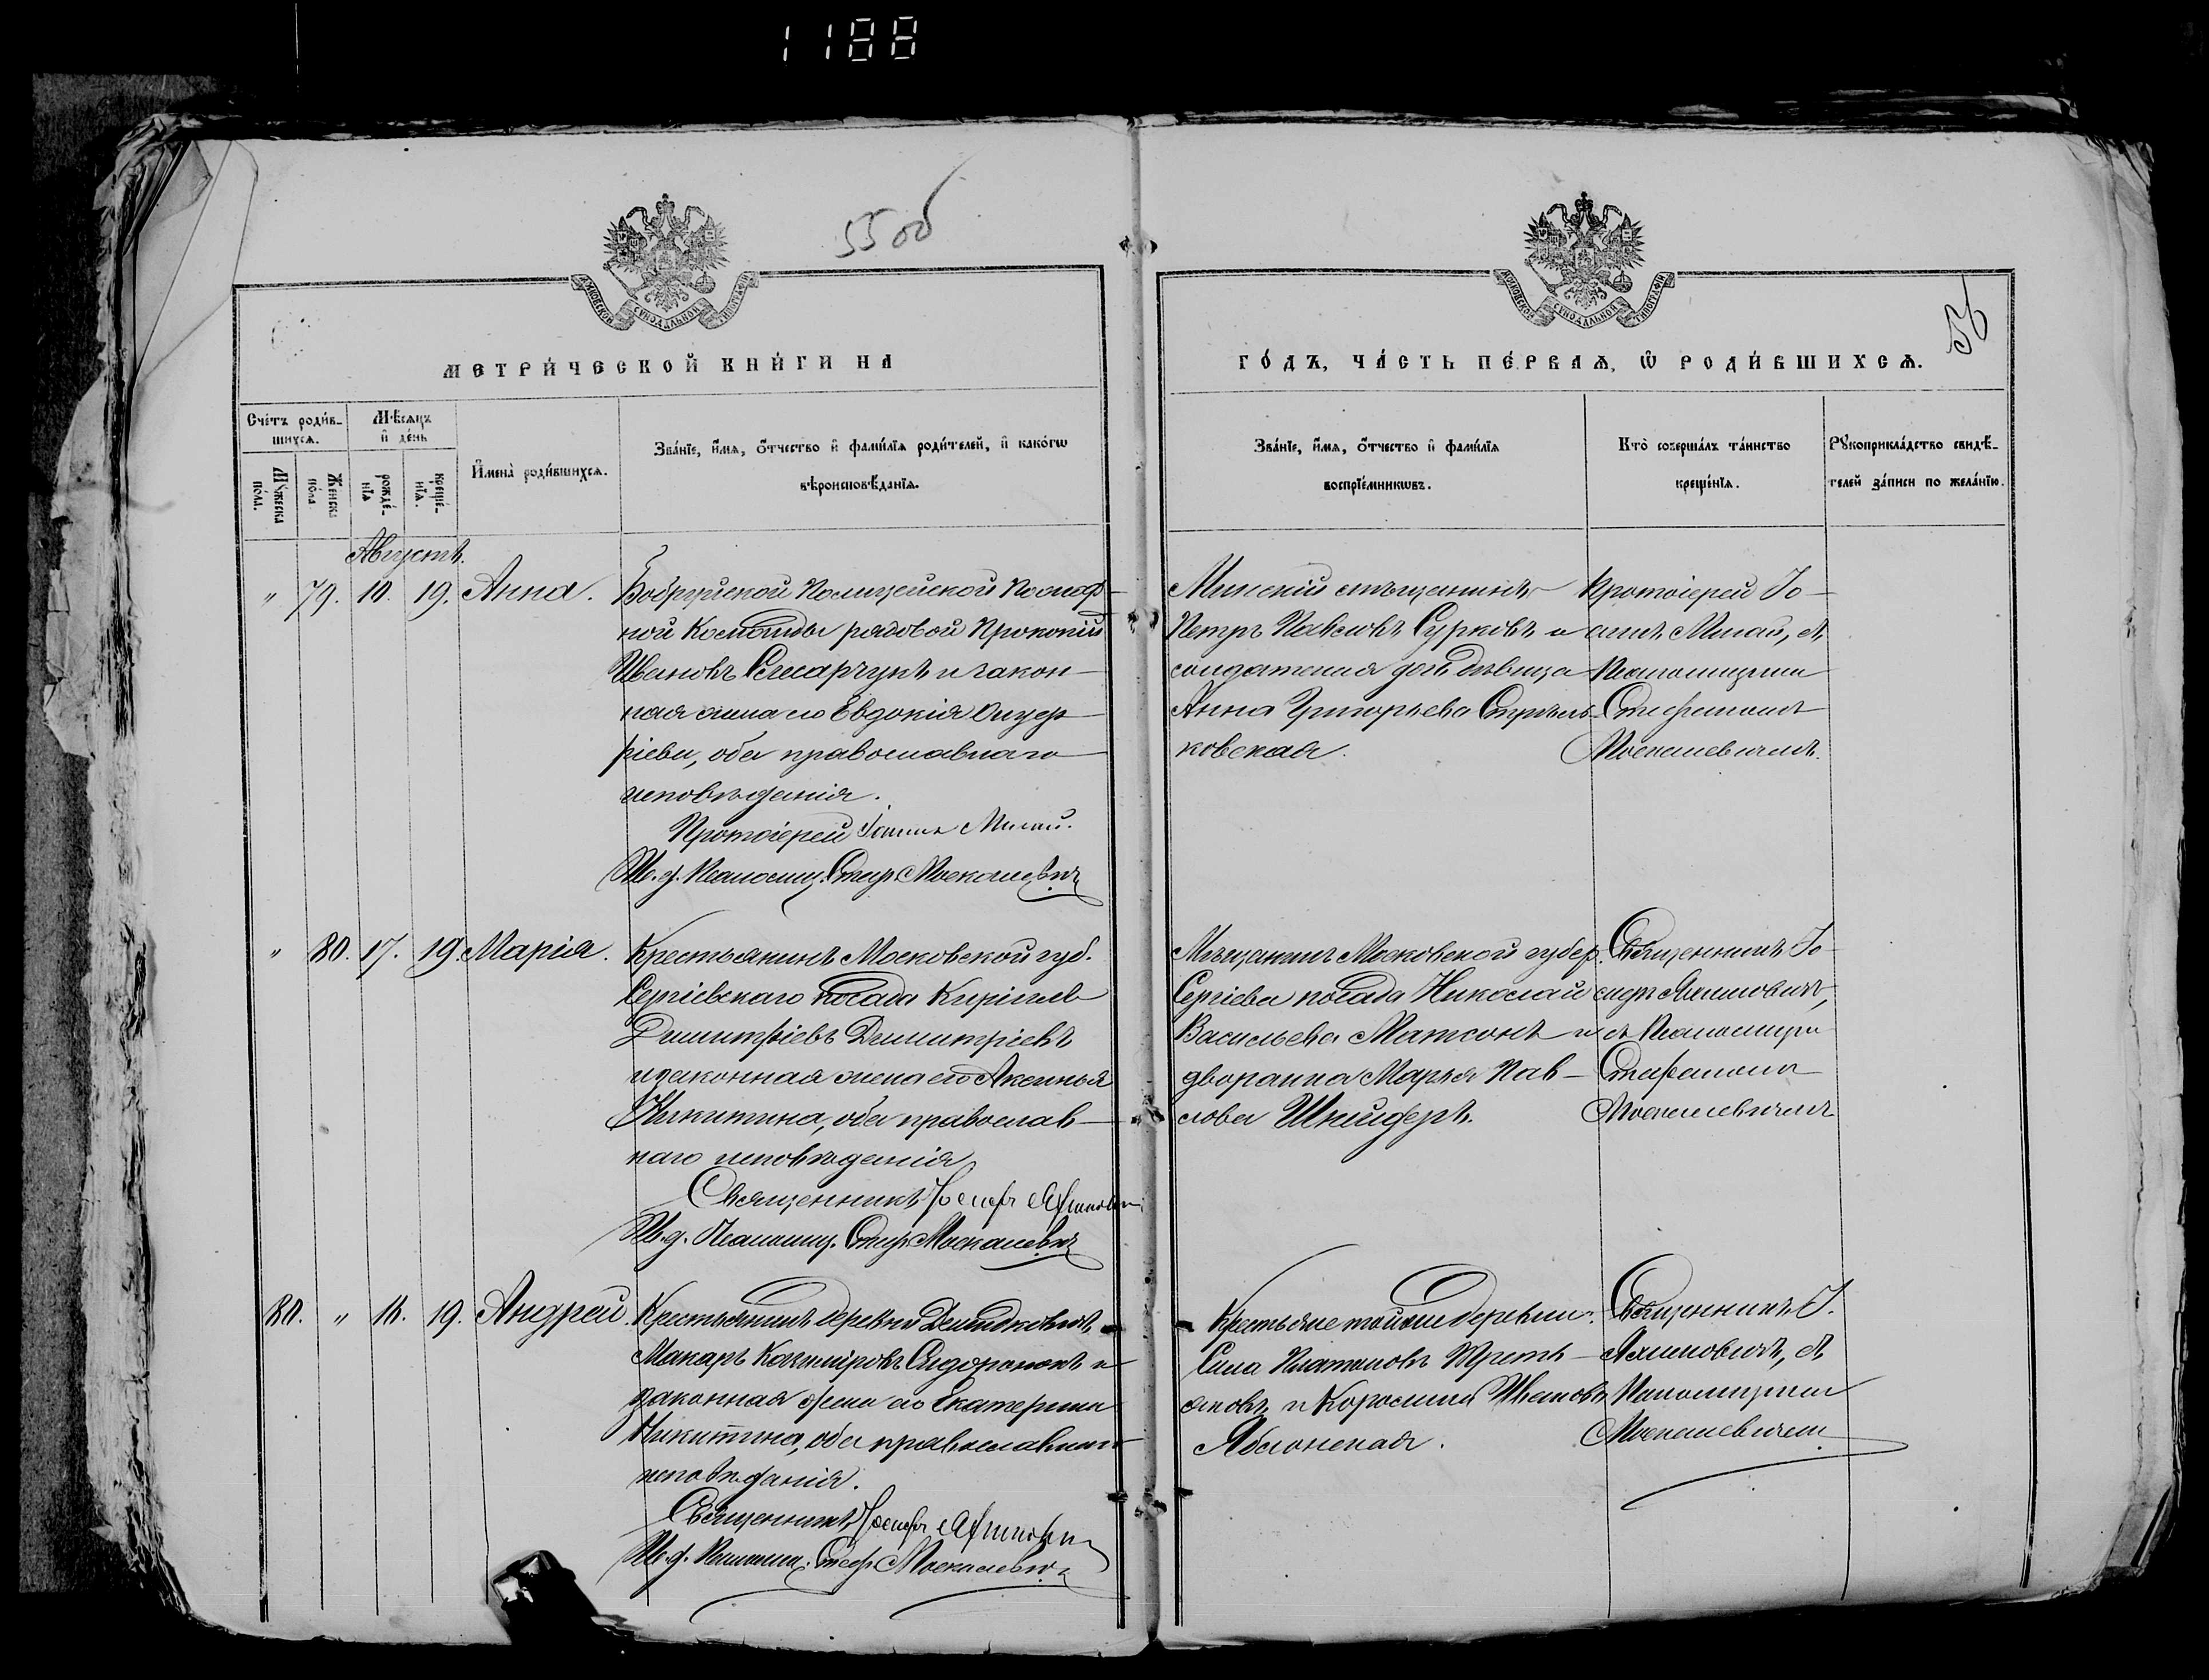 1188
55 об
МОСКОВСКОЙ СѴНОДАЛЬНОЙ ТИПОГРАФІИ
МЕТРИ́ЧЕСКОЙ КНИ́ГИ НА
Сче́тъ роди́в-
шихсѧ.
Мѣ́сѧцъ
и҆ де́нь
Му́жеска
по́ла.
Же́нска
по́ла
рожде́-
нїѧ
креще́-
нїѧ.
И҆мена̀ роди́вшихсѧ.
Зва́нїе, и҆́мѧ, ѻ҆́тчество и҆ фами́лїѧ роди́телей, и҆ како́гѡ
вѣроисповѣ́данїѧ.
Августъ.
" 79. 10. 19. Анна.
Бобруйской Полицейской Пожар-
ной Команды рядовой Прокопій
Ивановъ Слесарчукъ и закон-
ная жена его Евдокія Онуф-
ріева, оба православнаго
исповѣданія.
Протоіерей Іоаннъ Мигай.
И. д. Псаломщ. Стеф. Москалевичъ
" 80. 17. 19. Марія.
Крестьянинъ Московской губ.
Сергіевскаго посада Кириллъ
Димитріевъ Димитріевъ
и законная жена его Аксинья
Никитина, оба православ-
наго исповѣданія
Священникъ Іосифъ Яхимович
И. д. Псаломщ. Стеф. Москалевичъ
80. " 16. 19. Андрей.
Крестьянинъ деревни
Макаръ Казиміровъ Сидоренокъ и
законная жена его Екатерина
Никитина, оба православнаго
исповѣданія.
Священникъ Іосифъ Яхимович
И. д. Псаломщ. Стеф. Москалевичъ
56
МОСКОВСКОЙ СѴНОДАЛЬНОЙ ТИПОГРАФІИ
ГО́ДЪ, ЧА́СТЬ ПЕ́РВАѦ, Ѡ҆ РОДИ́ВШИХСѦ.
Зва́нїе, и҆́мѧ, ѻ҆́тчество и҆ фами́лїѧ
воспрїе́мникѡвъ.
Кто̀ соверша́лъ та́инство
креще́нїѧ.
Рꙋкоприкла́дство свидѣ́-
телей за́писи по жела́нїю.
Минскій мѣщанинъ
Петръ Павловъ Сурковъ и
солдатская дочь дѣвица
Анна Григорьева Стрѣль-
ковская.
Протоіерей Іо-
аннъ Мигай, съ
Псаломщикомъ
Стефаномъ
Москалевичемъ.
Мѣщанинъ Московской губер.
Сергіева посада Николай
Васильевъ Матсонъ и
дворянка Марья Пав-
лова Шнейдеръ.
Священникъ Іо-
сифъ Яхимовичъ,
съ Псаломщик.
Стефаномъ
Москалевичемъ
Крестьяне той же деревни:
Сила Платоновъ
и Иванова
Яблонская.
Священникъ І.
Яхимовичъ, съ
Псаломщикомъ
Москалевичемъ